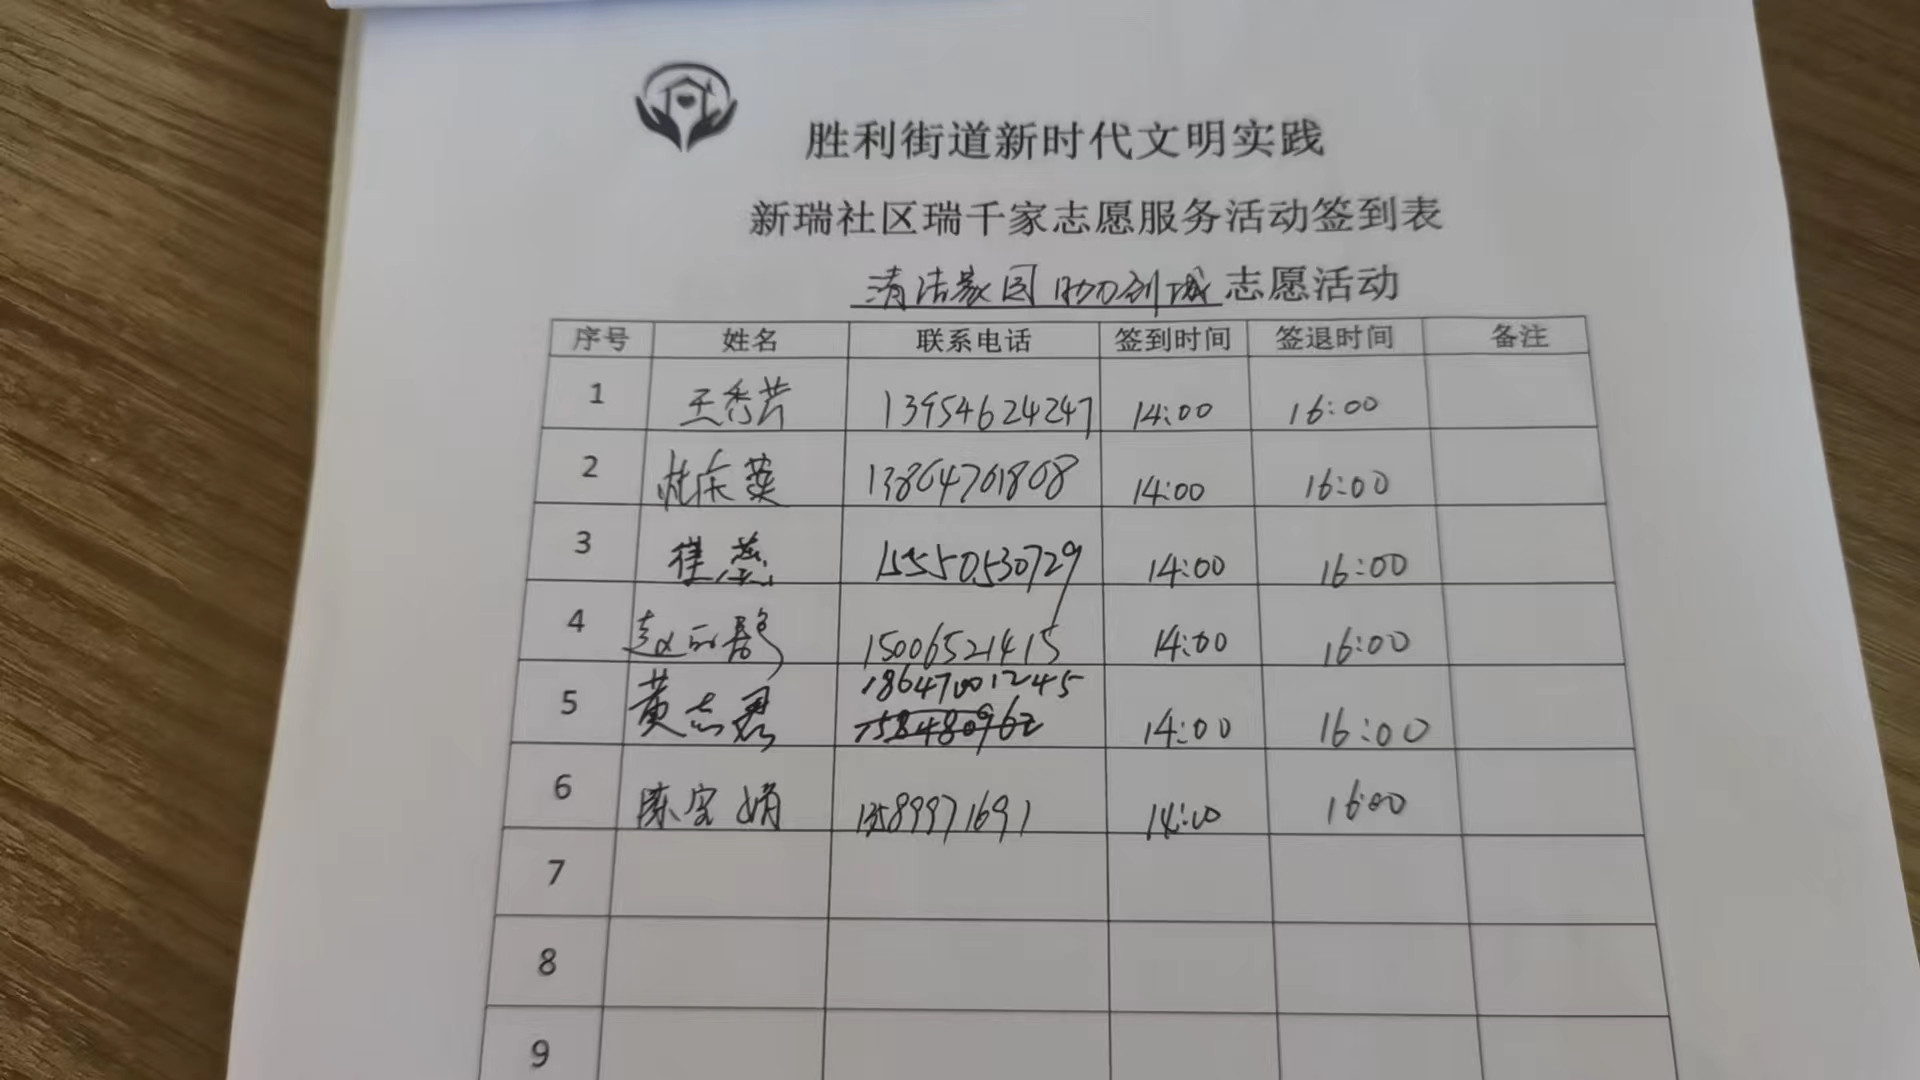 胜利街道新时代文明实践
新瑞社区瑞千家志愿服务活动签到表
清洁家园 助力创城 志愿活动
序号 姓名 联系电话 签到时间 签退时间 备注
1 王秀芹 13954624247 14:00 16:00
2 13864761868 14:00 16:00
3 崔燕 15550530729 14:00 16:00
4 赵 15006521415 14:00 16:00
5 黄志君 18647001245 14:00 16:00
6 陈 娟 13589971691 14:00 16:00
7
8
9